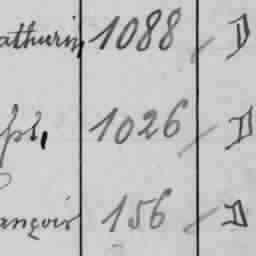 athurin, 1088 D
ph, 1026 D
ançois 156 D